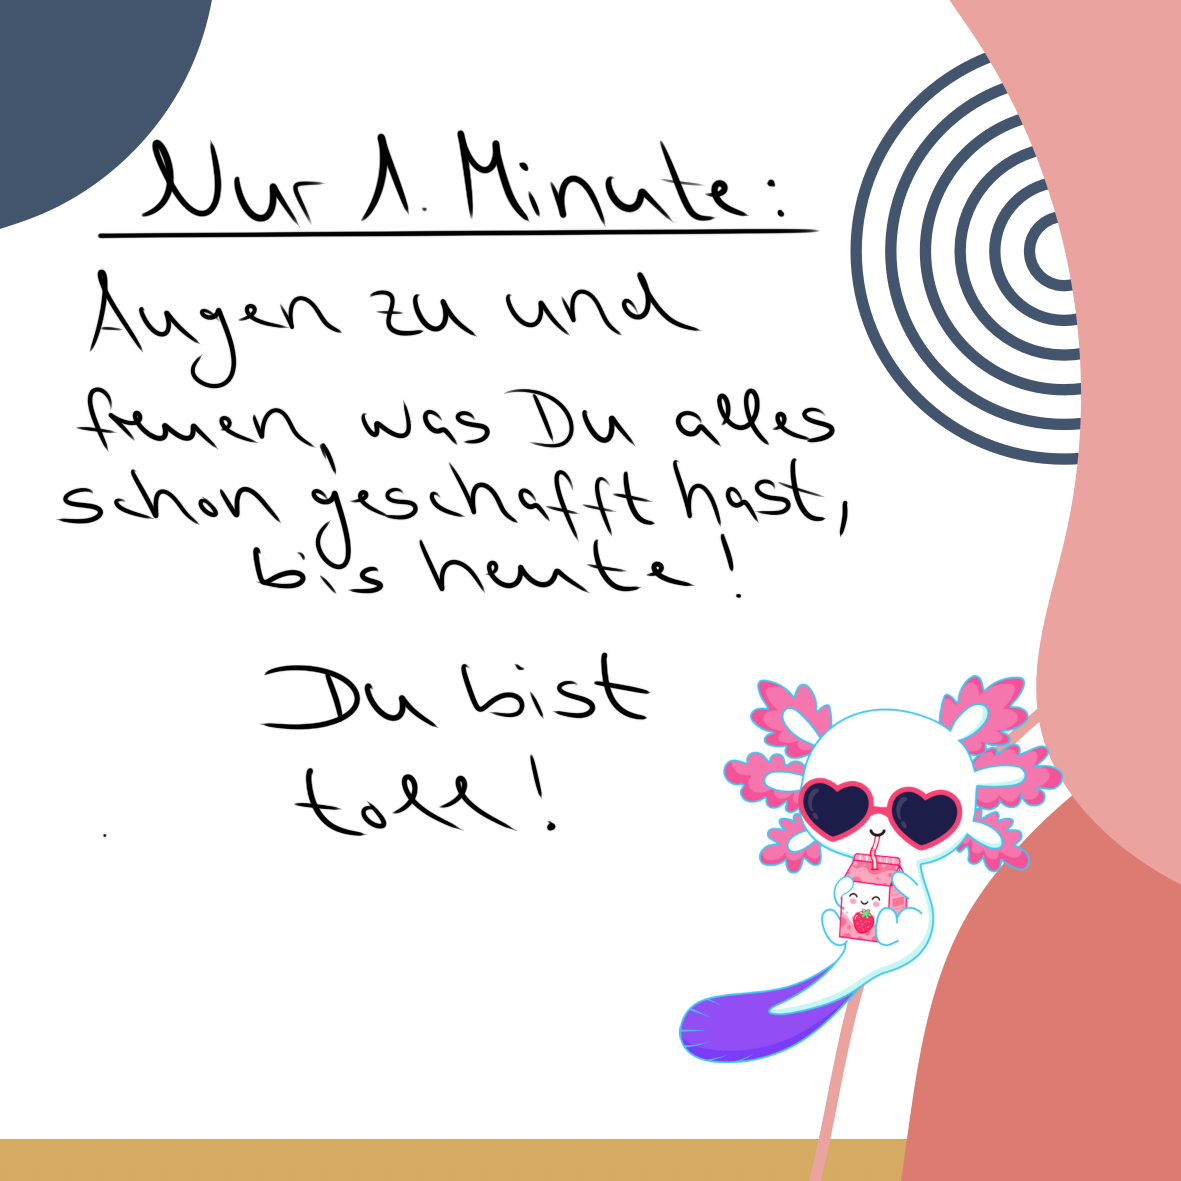 Nur 1. Minute:
Augen zu und
freuen, was Du alles
schon geschafft hast,
bis heute!
Du bist
toll!